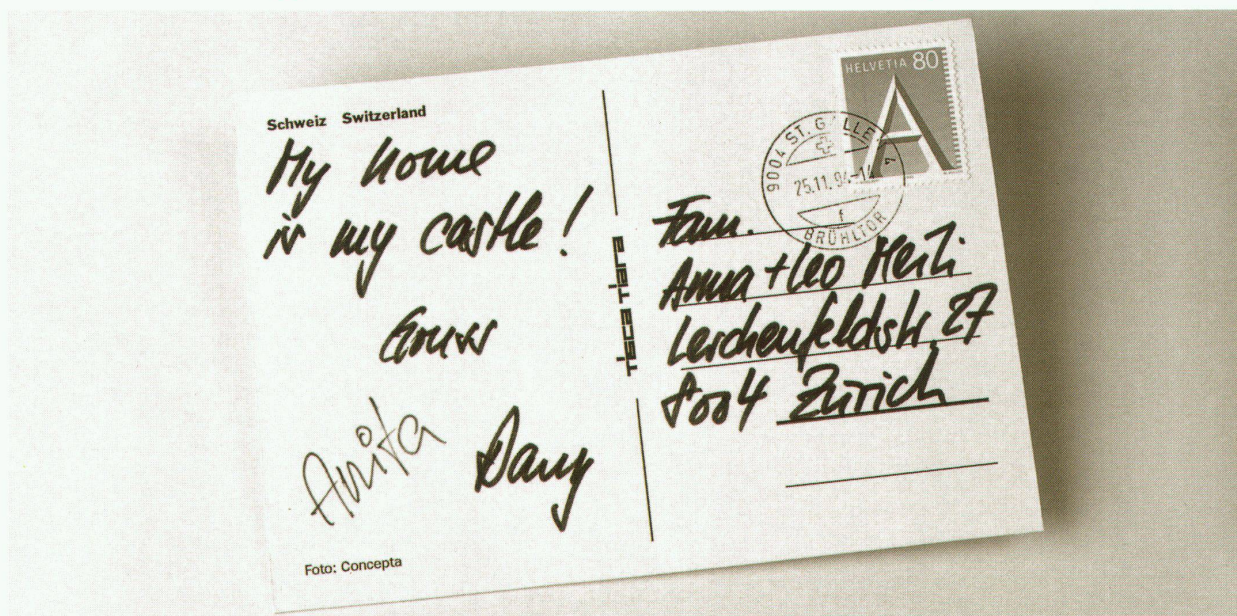 Schweiz Switzerland
My home
is my castle!
Gruss
Anita Dany
Foto: Concepta
tisca tiara
HELVETIA 80
A
9004 ST. GALLEN
25.11.94-14
f
BRÜHLTOR
Fam.
Anna + Leo Meili
Lerchenfeldstr. 27
8004 Zürich